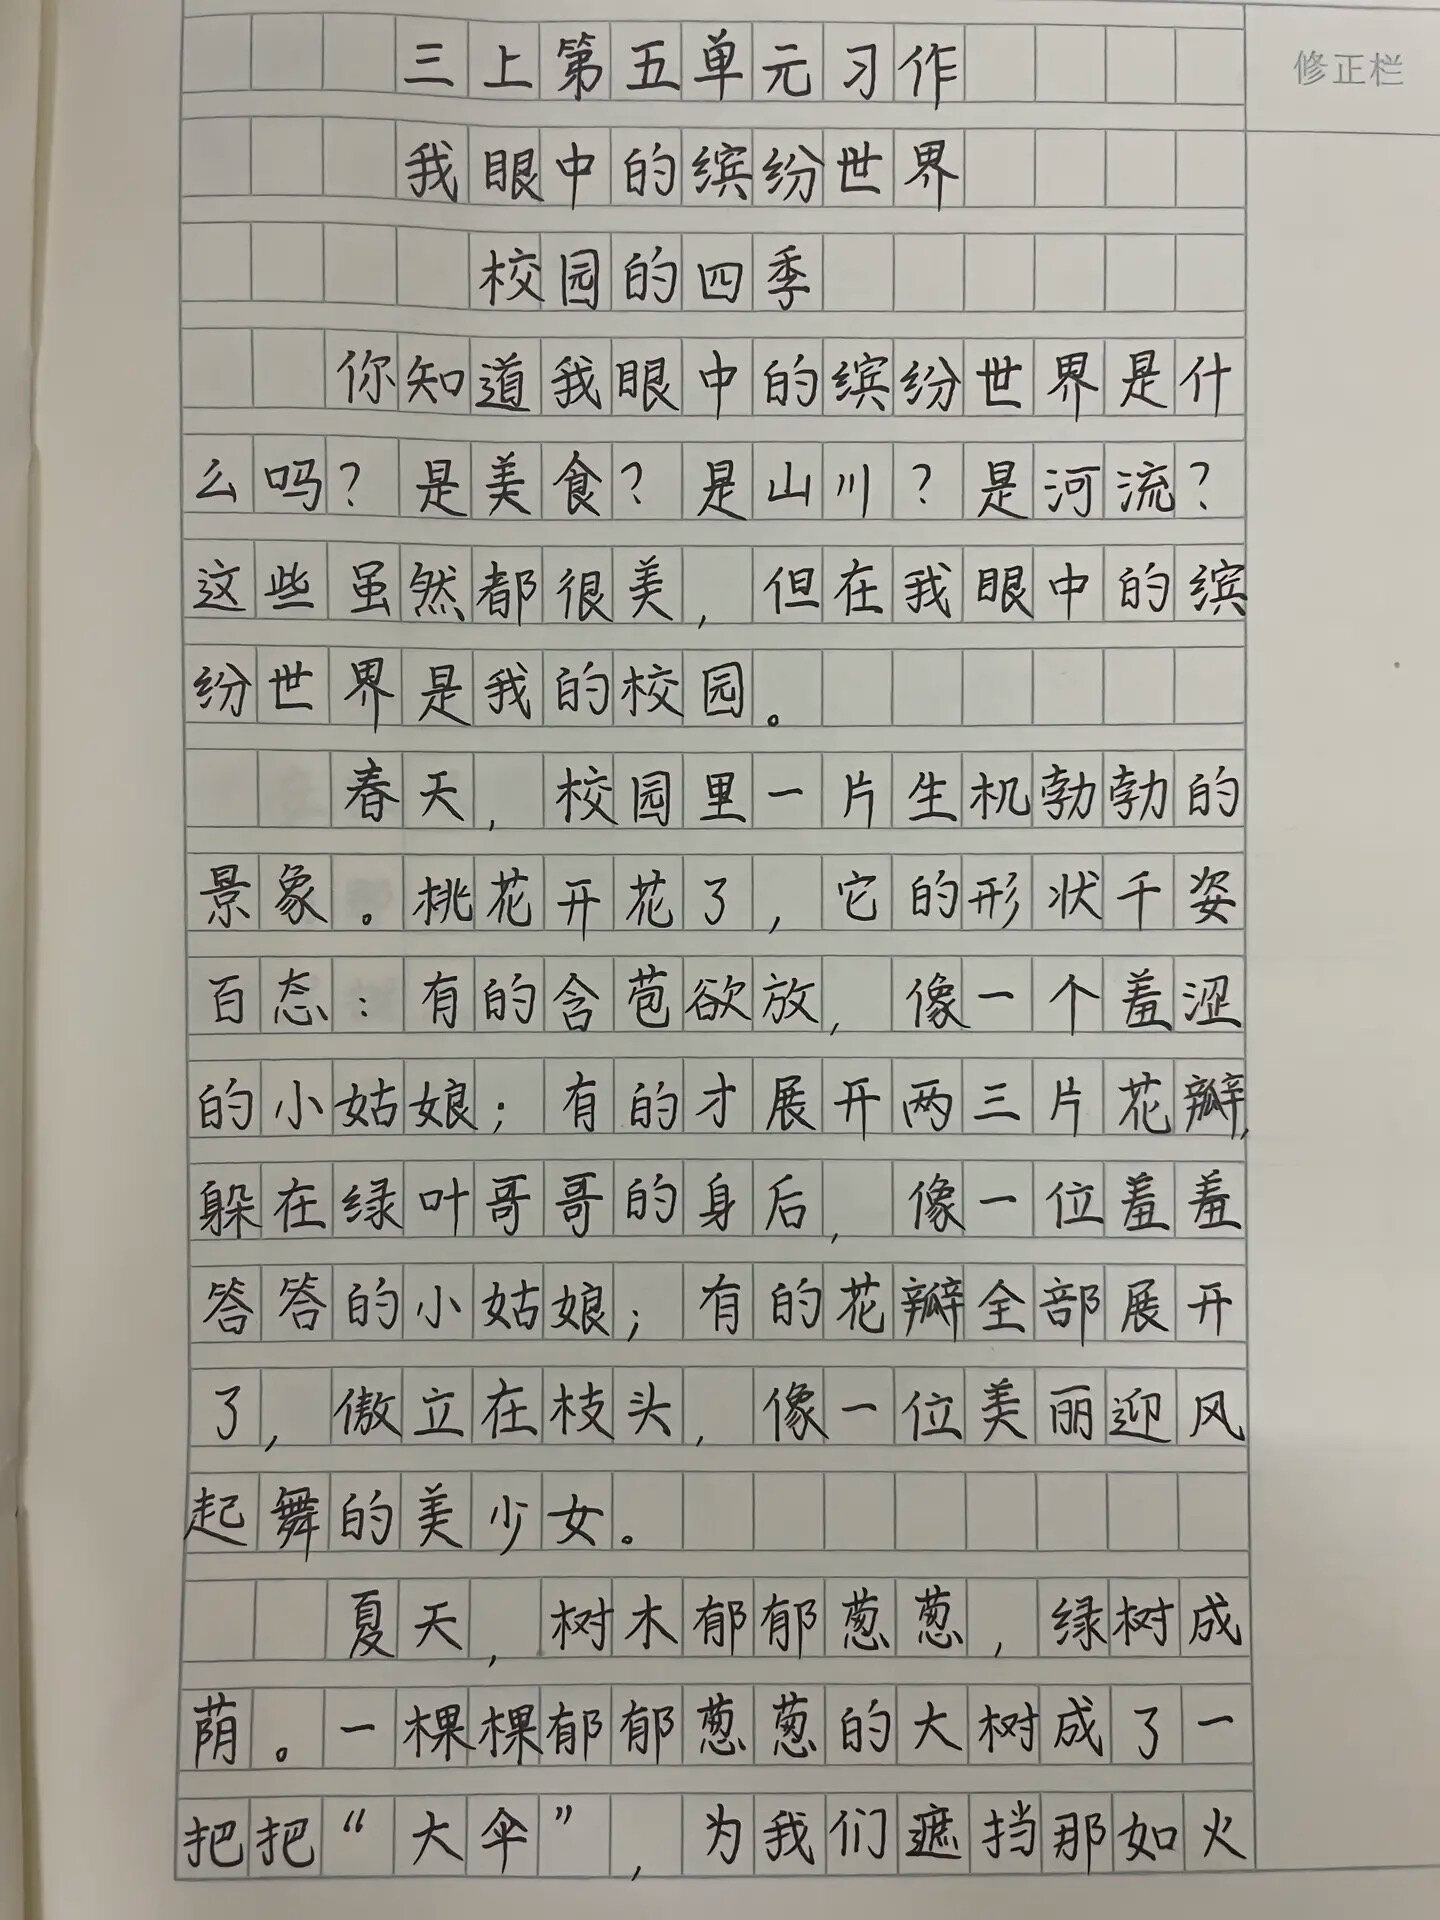 三上第五单元习作
修正栏
我眼中的缤纷世界
校园的四季
你知道我眼中的缤纷世界是什
么吗？是美食？是山川？是河流？
这些虽然都很美，但在我眼中的缤
纷世界是我的校园。
春天，校园里一片生机勃勃的
景象。桃花开花了，它的形状千姿
百态：有的含苞欲放，像一个羞涩
的小姑娘；有的才展开两三片花瓣，
躲在绿叶哥哥的身后，像一位羞羞
答答的小姑娘；有的花瓣全部展开
了，傲立在枝头，像一位美丽迎风
起舞的美少女。
夏天，树木郁郁葱葱，绿树成
荫。一棵棵郁郁葱葱的大树成了一
把把“大伞”，为我们遮挡那如火